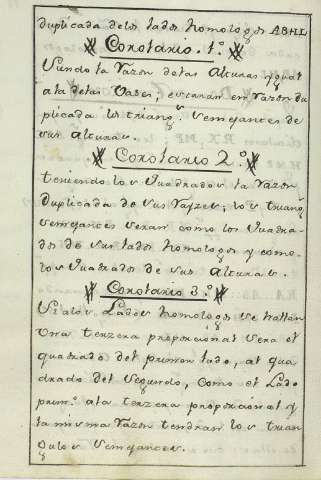 duplicada delos lados homologos ABHL
Corolario. 1.º
Siendo la razon delas Alturas ygual
ala delas Vases, estaran en razon du
plicada los triang.s semejantes de
sus Alturas.
Corolario 2.º
teniendo los Quadrados la razon
duplicada de sus Rayzes; los triang.s
semejantes seran como los Quadra-
dos de sus lados homologos y como
los Quadrados de sus Alturas.
Corolario 3.º
Si alos Lados homologos se hallan
Una terzera proporcional sera el
quadrado del primer lado, al qua
drado del segundo, como el Lado
prim.º ala terzera proporcional y
la misma razon tendran los trian
gulos semejantes.